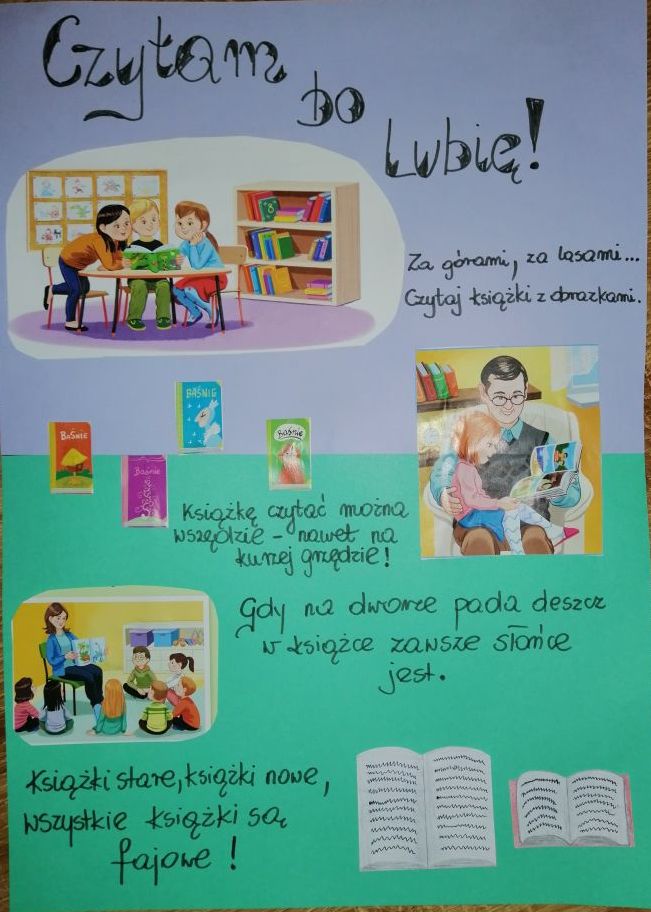 Czytam
bo
Lubię!
Za górami, za lasami...
Czytaj książki z obrazkami.
BAŚNIE
BAŚNIE
Baśnie
Baśnie
Książkę czytać można
wszędzie - nawet na
kurzej grzędzie!
Gdy na dworze pada deszcz
w książce zawsze słońce
jest.
Książki stare, książki nowe,
wszystkie książki są
fajowe!